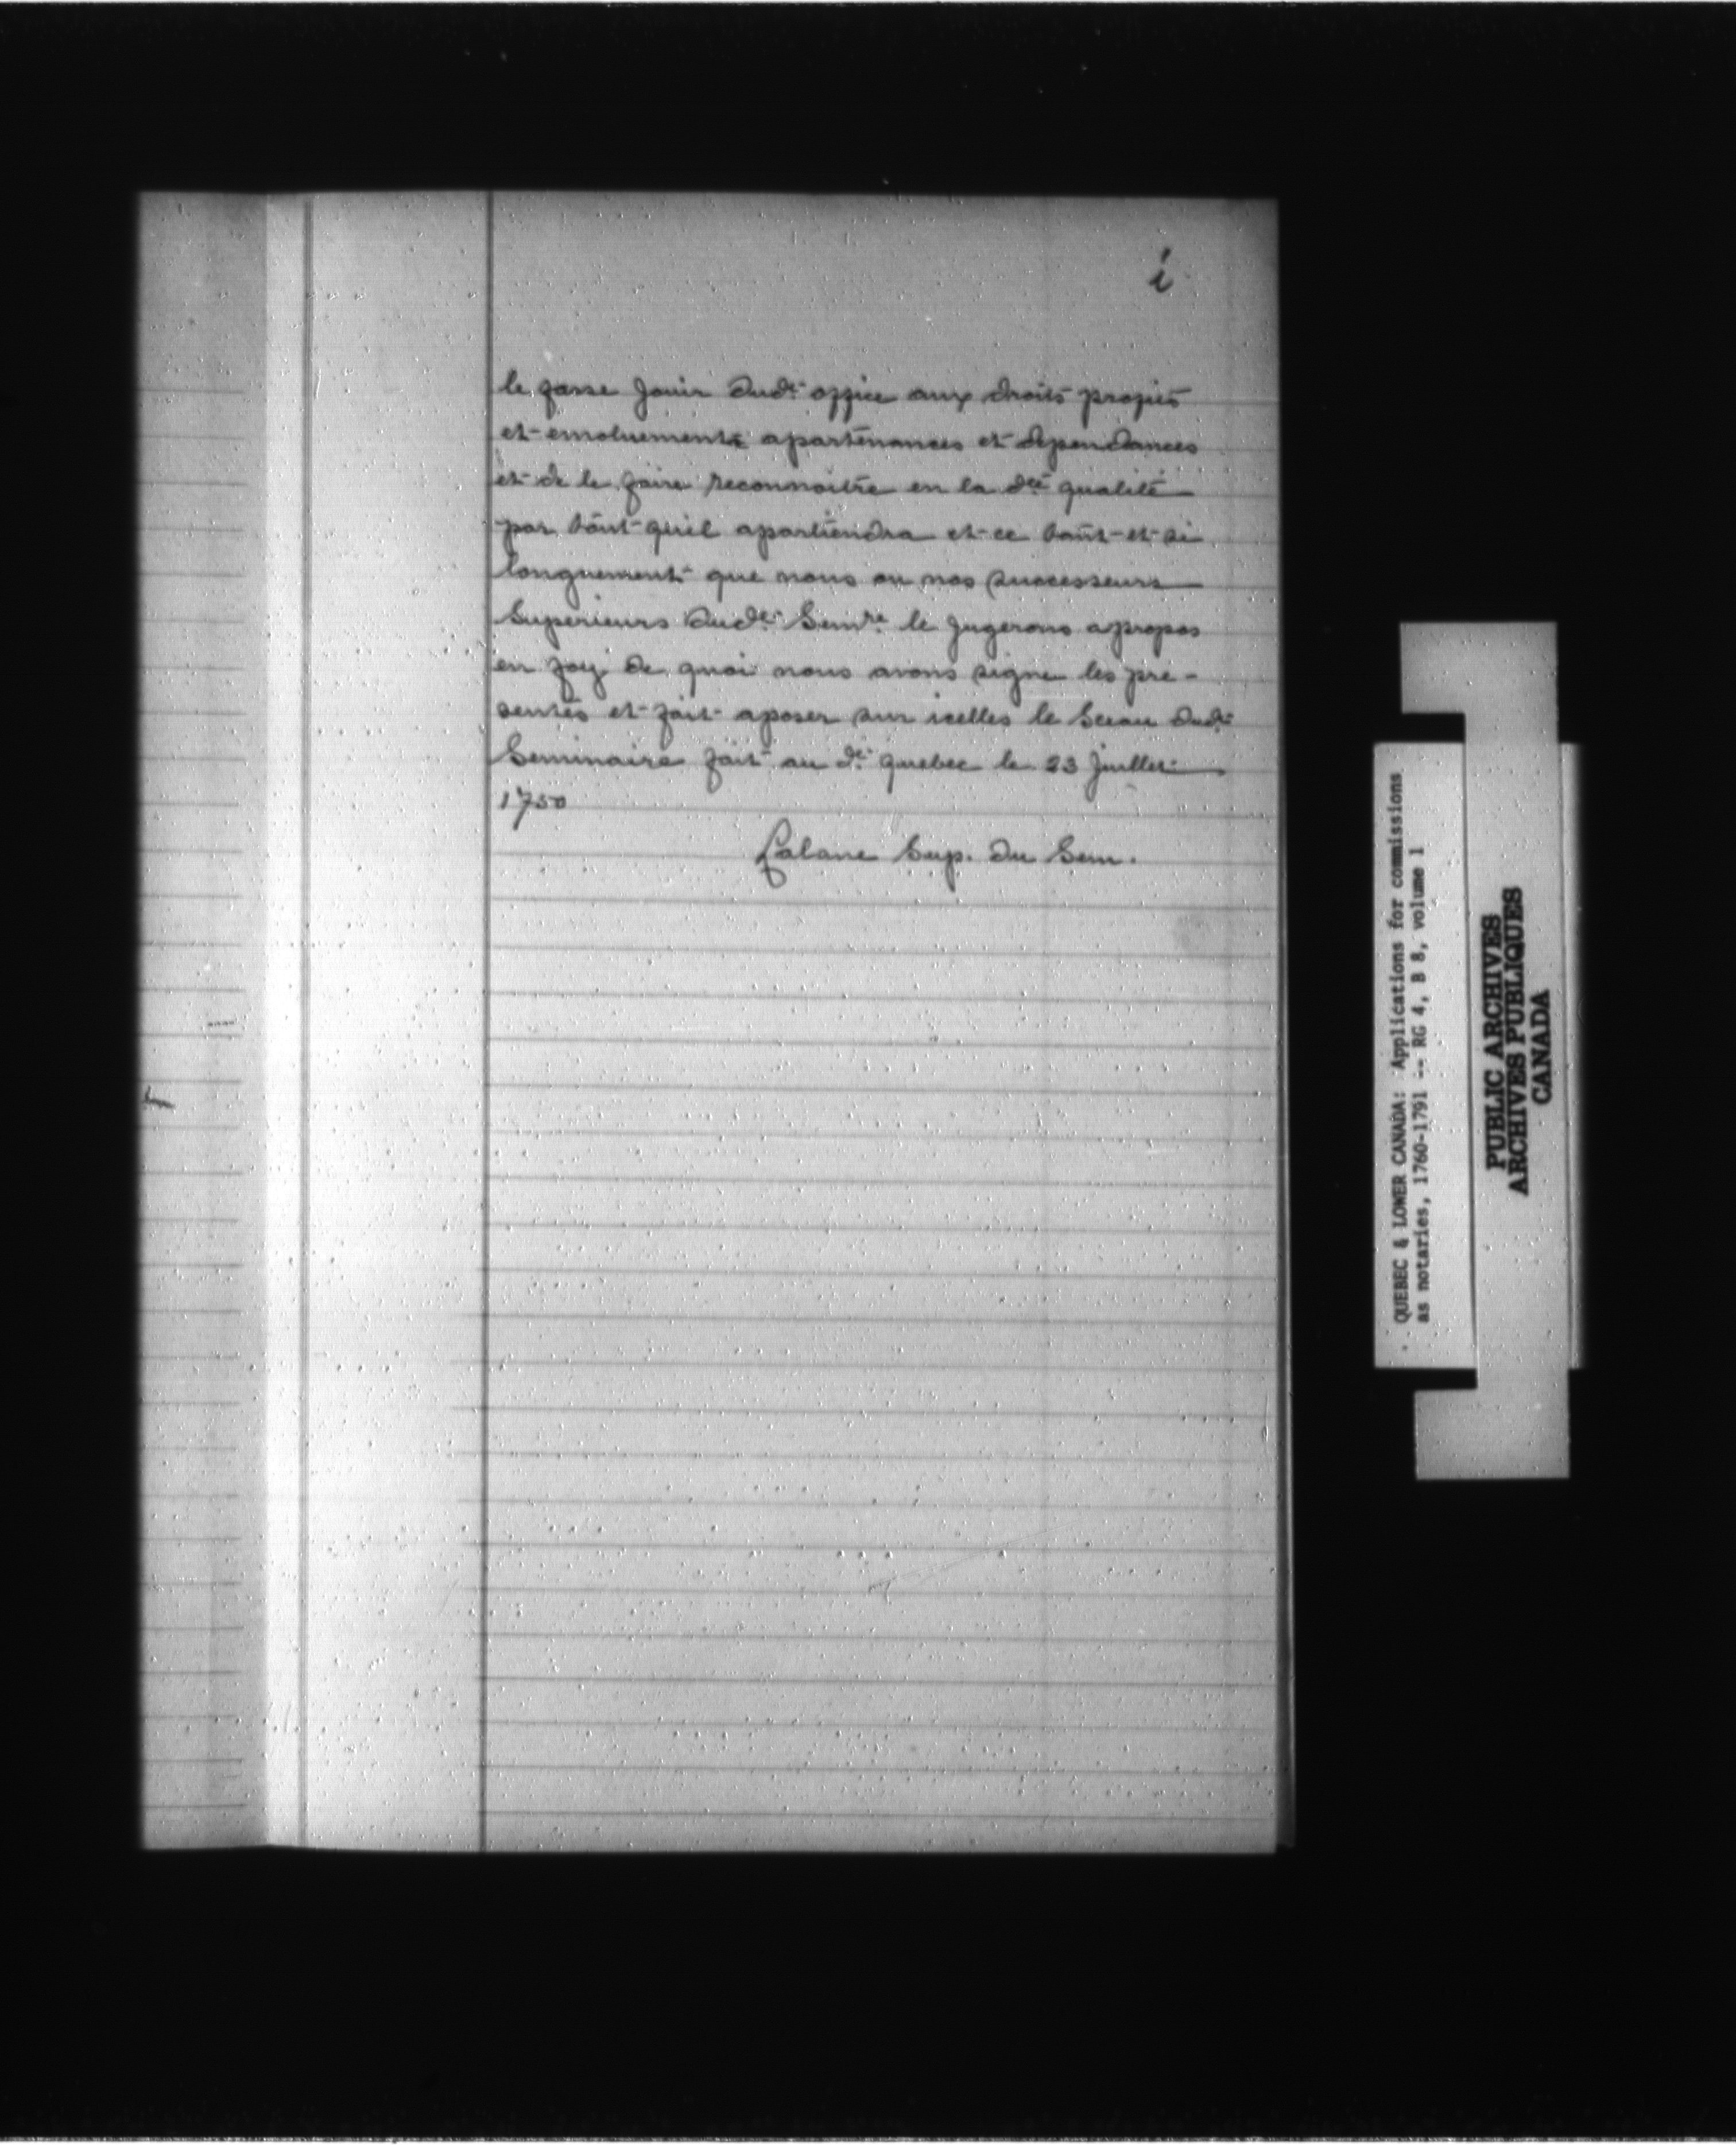 i
le fasse Jouir dudt office aux droits profits
et emoluements apartenances et dependances
et de le faire reconnoitre en la dte qualité
par tout quil apartiendra et ce tant et si
longuement que nous ou nos successeurs
Superieurs dudt Semre le Jugerons apropos
en foy de quoi nous avons signe les pre-
sentes et fait aposer sur icelles le Sceau dudt
Seminaire fait au dt quebec le 23 Juillet
1750
Lalane Sup. du Sem.
QUEBEC & LOWER CANADA: Applications for commissions
as notaries, 1760-1791 -- RG 4, B 8, volume 1
PUBLIC ARCHIVES
ARCHIVES PUBLIQUES
CANADA